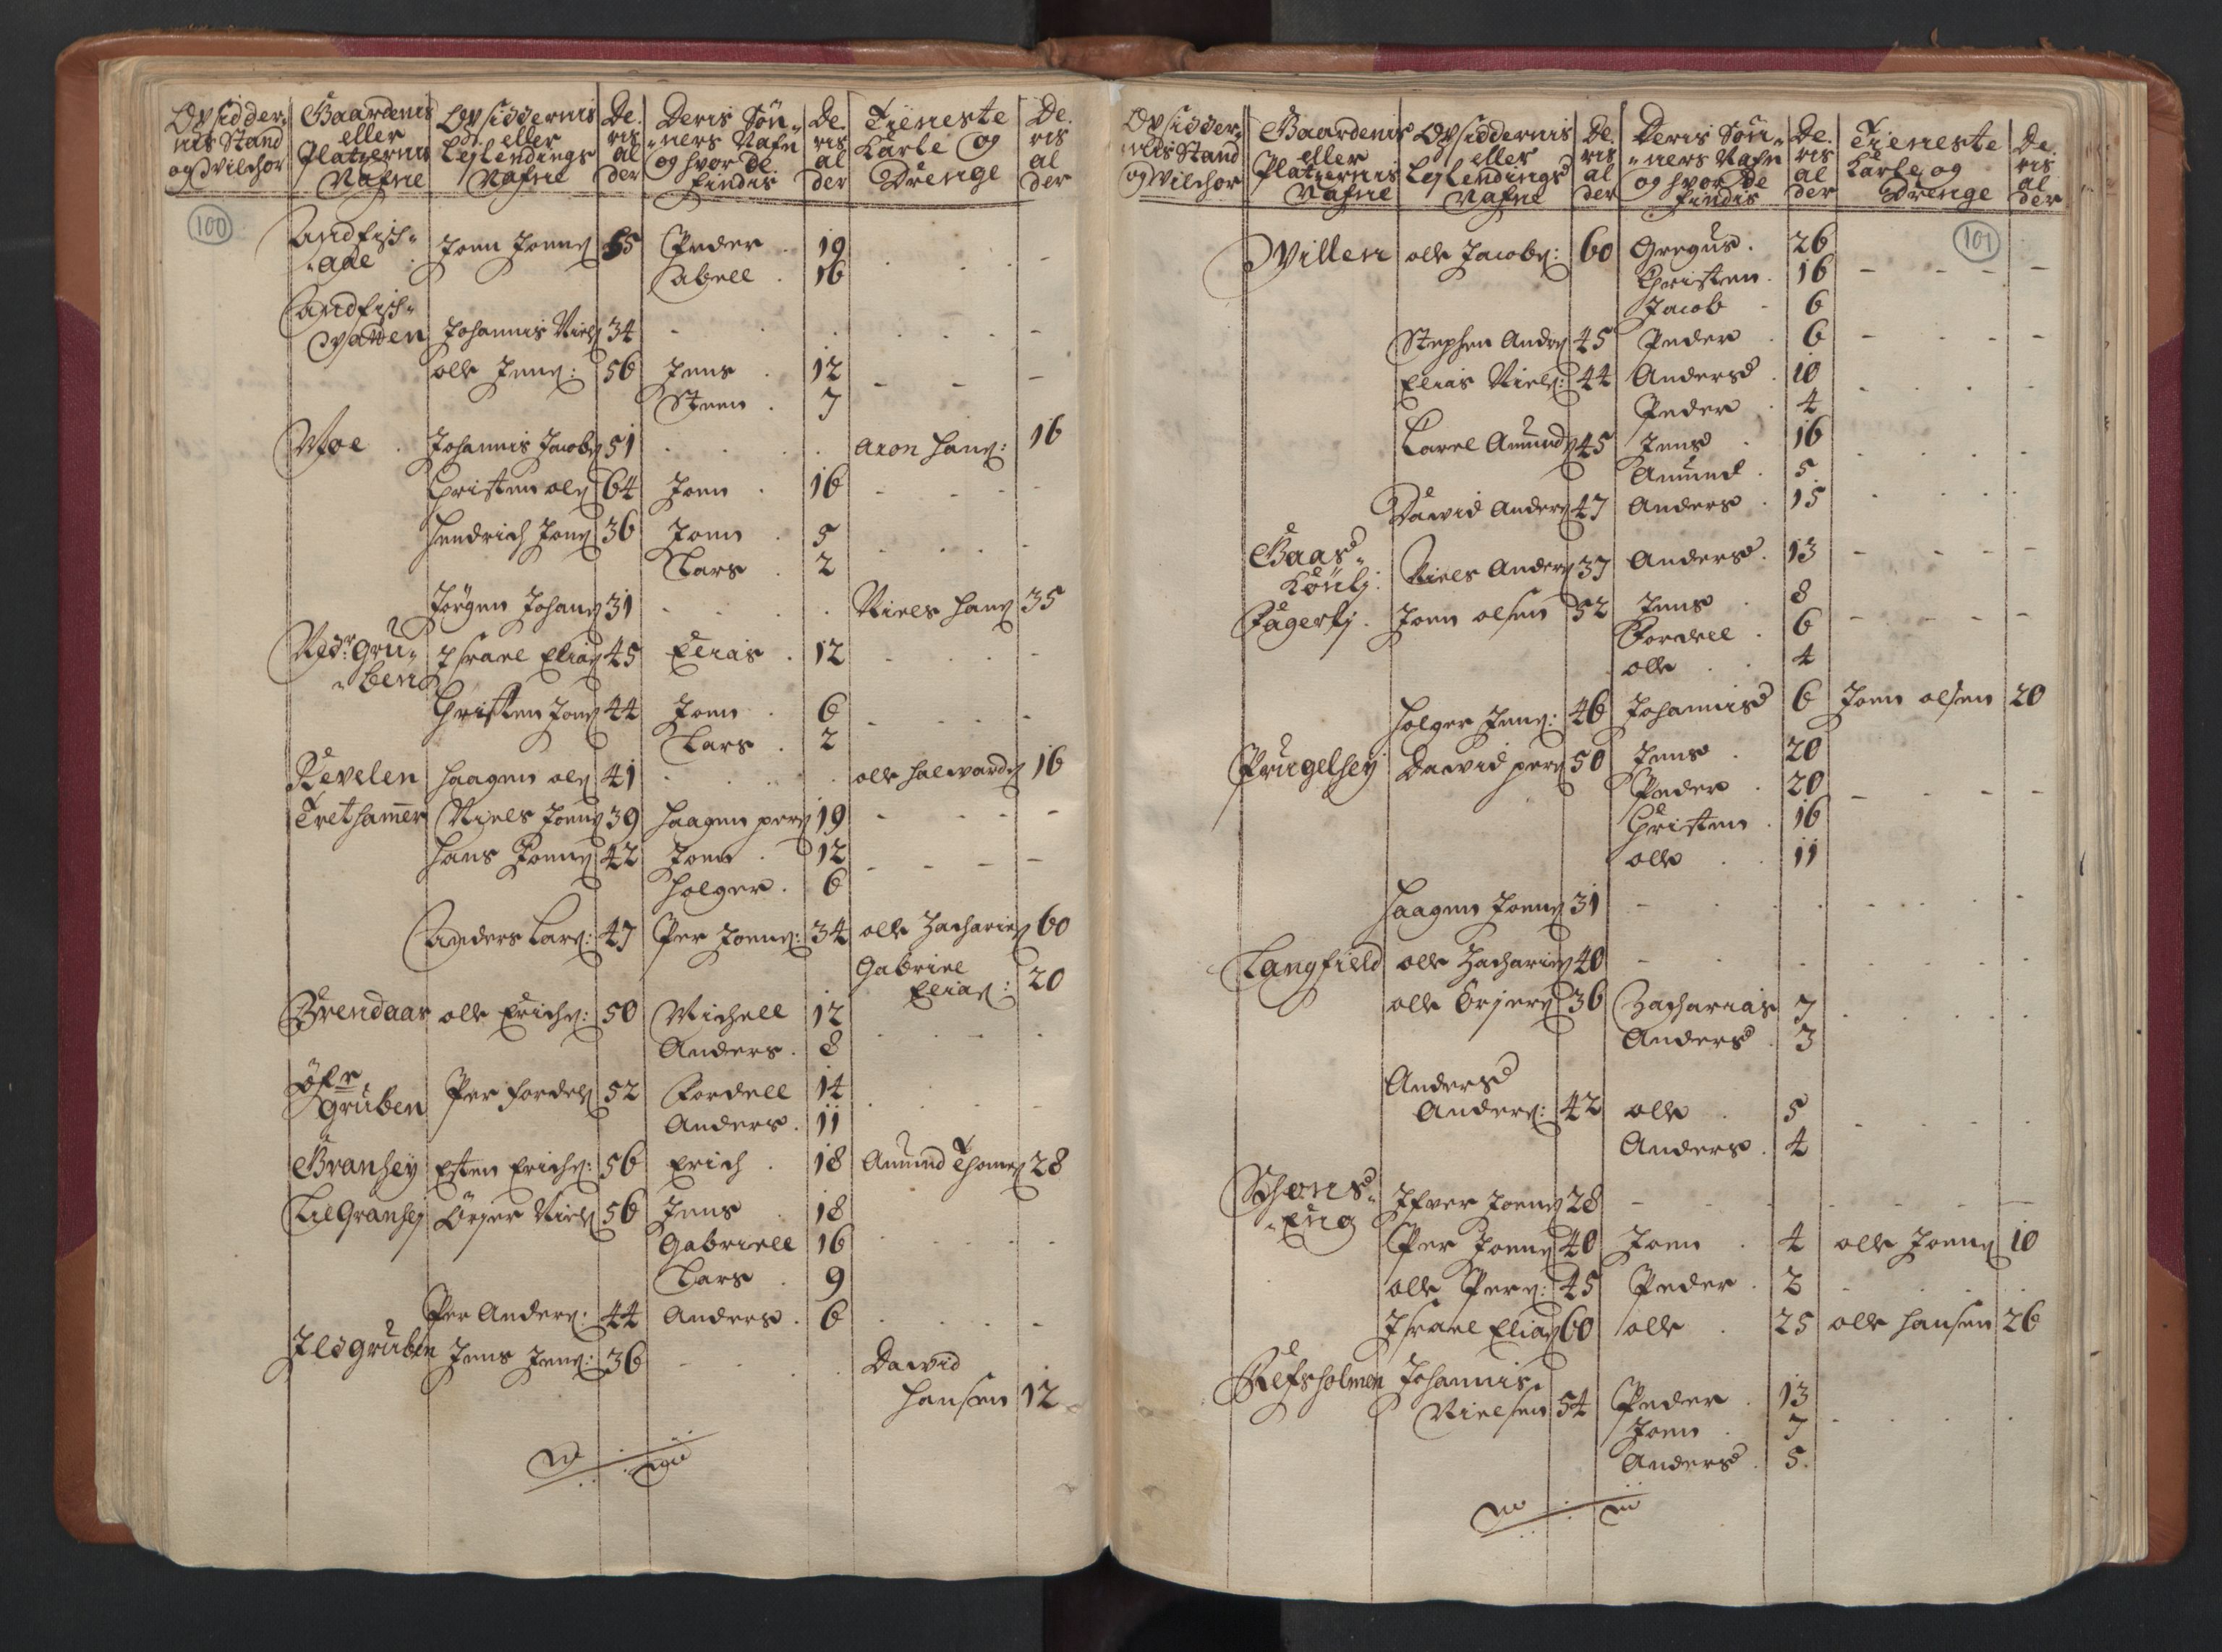 Opsidder-
nis Stand
og Vilchor
Gaardenis
eller
Platzernis
Nafne
Opsiddernis
eller
Lejlendings
Nafne
De-
ris
al
der
Deris Søn-
ners Nafn
og hvor de
findis
De-
ris
al
der
Tieneste
Karle og
Drenge
De-
ris
al
der
100
Andfisch-
aae Joen Joens: 65 Peder 19
Abell 16
Andfisch-
Vatten Johannis Niels: 34
olle Jens: 56 Jens 12
Steen 7
Moe Johannis Jacobs: 51 Aron Hans: 16
Christen ols: 64 Joen 16
Hendrich Jons: 36 Joen 5
Lars 2
Jørgen Johans: 31 Niels Hans: 35
Nedr: Gru-
ben Israel Elias: 45 Elias 12
Christen Jons: 44 Joen 6
Lars 2
Revelen Haagen ols: 41 olle Halvards: 16
Trethamer Niels Joens: 39 Haagen pers: 19
Hans Joens: 42 Joen 12
Holger 6
Anders Lars: 47 Per Joens: 34 olle Zacharies: 60
Gabriel
Elias: 20
Brendaas olle Erichs: 50 Michell 12
Anders 8
Øfr
Gruben Per fordels: 52 Fordell 14
Anders 11
Granhey Esten Erichs: 56 Erich 18 Amund Thomes: 28
Lil Granhej Ørjer Niels: 56 Jens 18
Gabriell 16
Lars 9
Per Anders: 44 Anders 6
Ildgruben Jens Jens: 36 David
Hansen 12
Opsidder-
nis Stand
og Vilchor
Gaardenis
eller
Platzernis
Nafne
Opsiddernis
eller
Lejlendings
Nafne
De-
ris
al
der
Deris Søn-
ners Nafn
og hvor de
findis
De-
ris
al
der
Tieneste
Karle og
Drenge
De-
ris
al
der
101
Villen olle Jacobs: 60 Gregus 26
Christen 16
Jacob 6
Stephen Anders: 45 Peder 6
Elias Niels: 44 Anders 10
Peder 4
Karel Amunds: 45 Jens 16
Amund 5
David Anders: 47 Anders 15
Gaas-
Koulj: Niels Anders: 37 Anders 13
Fagerlj Joen olsen 52 Jens 8
Fordell 6
olle 4
Holger Jens: 46 Johannis 6 Joen olsen 20
Prugelhey David pers: 50 Jens 20
Peder 20
Christen 16
olle 11
Haagen Joens: 31
Langfield olle Zacharies: 40
olle Ørjers: 36 Zacharias 7
Anders 3
Anders
Anders: 42 olle 5
Anders 4
Schons-
Eng Ifver Joens: 28
Per Joens: 40 Joen 4 olle Joens: 10
olle Pers: 45 Peder 2
Israel Elias: 60 olle 25 olle Hansen 26
Refsholmen Johannis
Nielsen 54 Peder 13
Joen 7
Anders 5